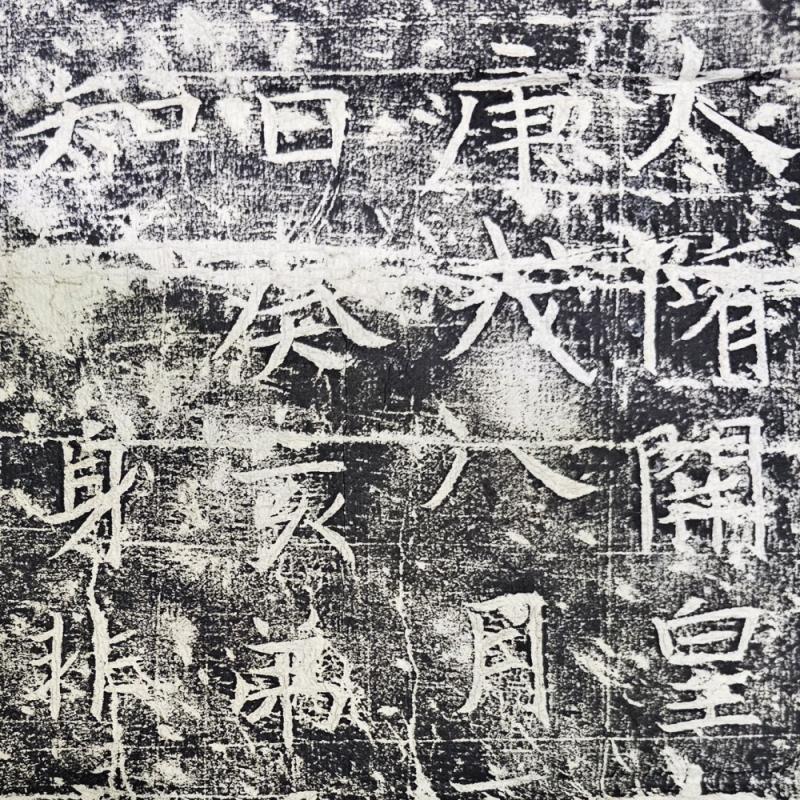 大隋開皇
庚戌八月一
日癸亥弟
知身非